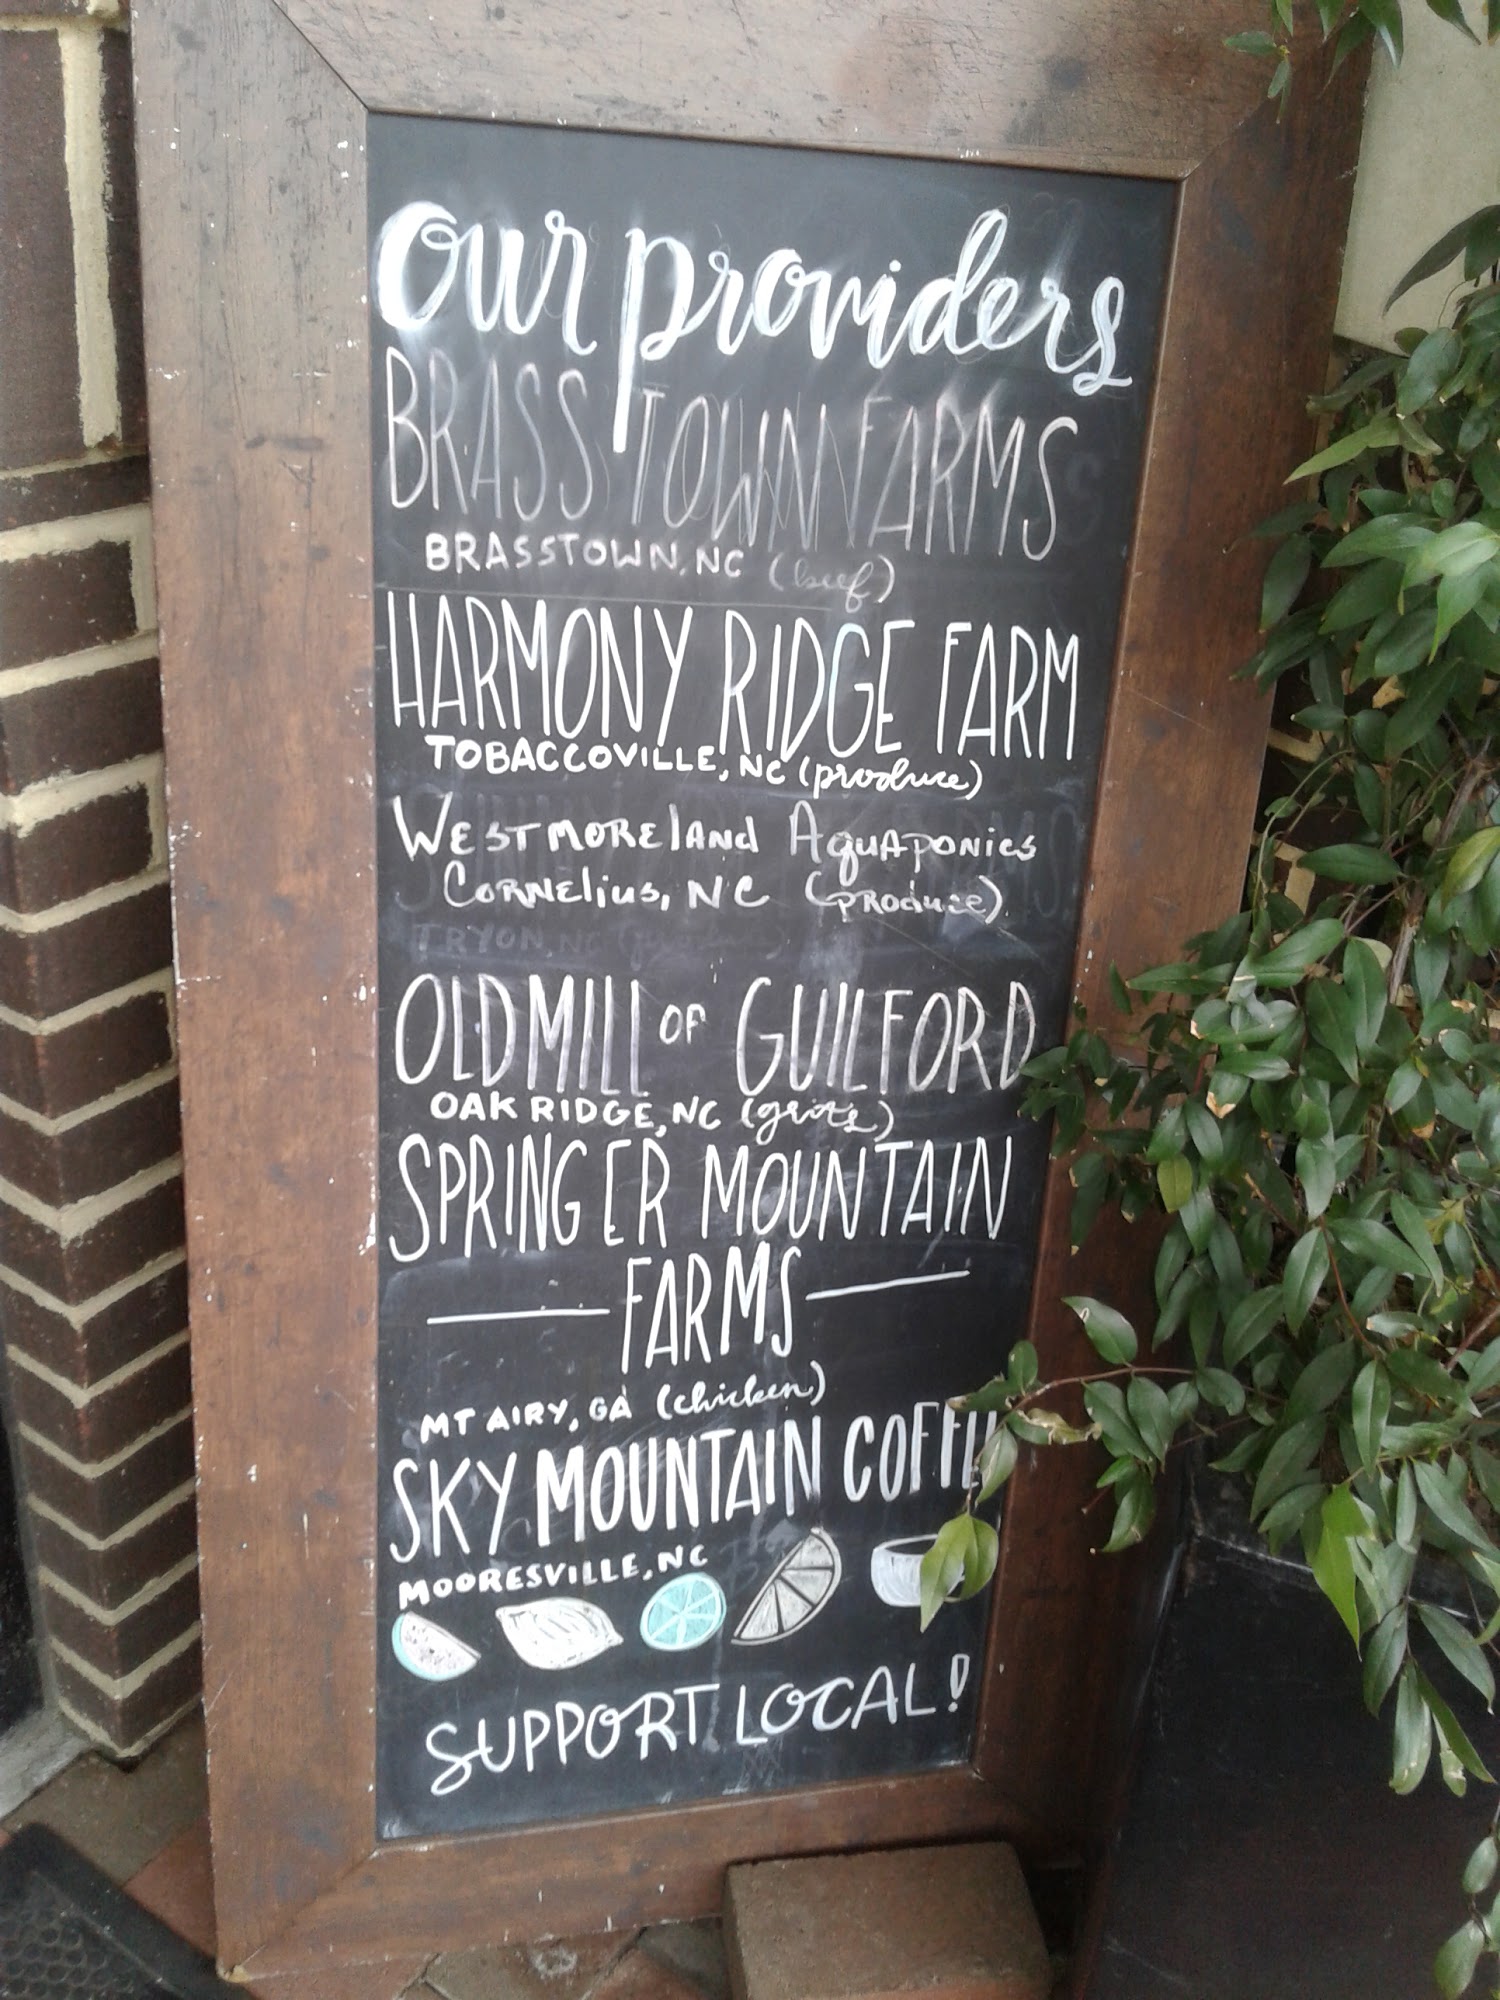 our providers
BRASSTOWN FARMS
BRASSTOWN, NC (beef)
HARMONY RIDGE FARM
TOBACCOVILLE, NC (produce)
WESTMORElANd AquAPONics
CORNElius, NC (PROduce)
TRYON, NC
OLD MILL OF GUILFORD
OAK RIDGE, NC (grits)
SPRINGER MOUNTAIN
FARMS
MT AIRY, GA (chicken)
SKY MOUNTAIN COFFEE
MOORESVILLE, NC
SUPPORT LOCAL!